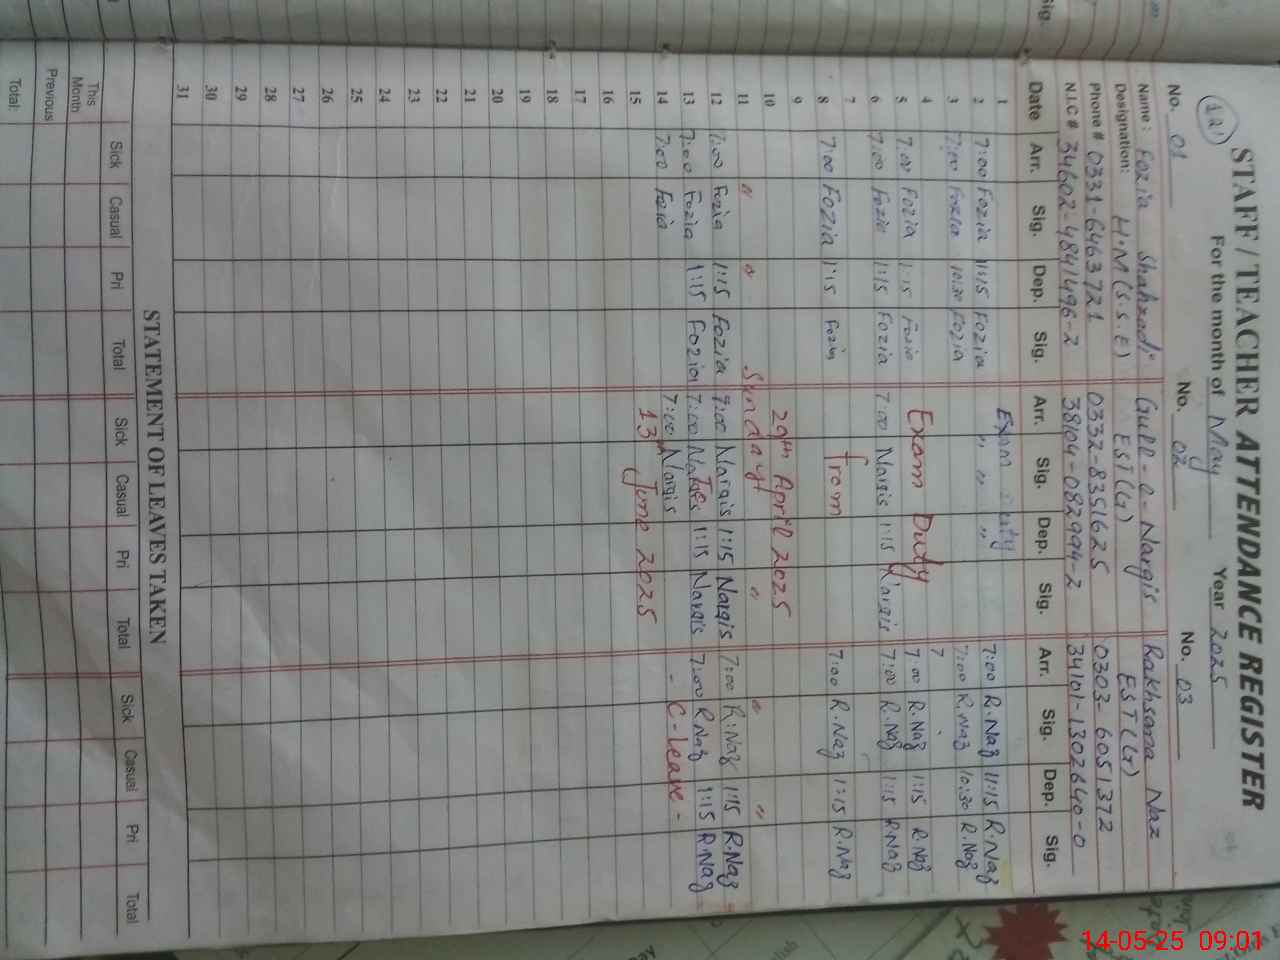 STAFF / TEACHER ATTENDANCE REGISTER
121
For the month of May Year 2025
No. 01 No. 02 No. 03
Name: Fozia Shahzadi Gull-e-Nargis Rakhsana Naz
Designation: H.M (S.S.E) EST(G) EST(G)
Phone # 0331-6463721 0332-8351625 0303-6051372
N.I.C # 34602-4841496-2 38104-0829994-2 34101-1302640-0
Date Arr. Sig. Dep. Sig. Arr. Sig. Dep. Sig. Arr. Sig. Dep. Sig.
1 Exam Duty
2 7:00 Fozia 11:15 Fozia " " " 7:00 R.Naz 11:15 R.Naz
3 7:00 Fozia 10:30 Fozia 7:00 R.Naz 10:30 R.Naz
4 7
5 7:00 Fozia 1:15 Fozia Exam Duty 7:00 R.Naz 1:15 R.Naz
6 7:00 Fozia 1:15 Fozia 7:00 Nargis 1:15 Nargis 7:00 R.Naz 1:15 R.Naz
7
8 7:00 Fozia 1:15 Fozia from 7:00 R.Naz 1:15 R.Naz
9
10 29th April 2025
11 " " Sunday " " "
12 7:00 Fozia 1:15 Fozia 7:00 Nargis 1:15 Nargis 7:00 R.Naz 1:15 R.Naz
13 7:00 Fozia 1:15 Fozia 7:00 Nargis 1:15 Nargis 7:00 R.Naz 1:15 R.Naz
14 7:00 Fozia 7:00 Nargis - C-Leave -
15 13th June 2025
16
17
18
19
20
21
22
23
24
25
26
27
28
29
30
31
STATEMENT OF LEAVES TAKEN
Sick Casual Pri Total Sick Casual Pri Total Sick Casual Pri Total
This Month
Previous
Total:
Sig.
14-05-25 09:01